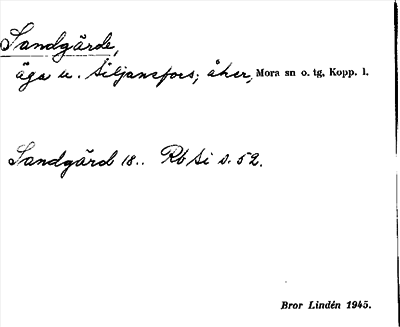 Sandgärde,
äga u. Siljansfors; åker, Mora sn o. tg, Kopp. l.
Sandgärd 18.. Rb Si s. 52.
Bror Lindén 1945.